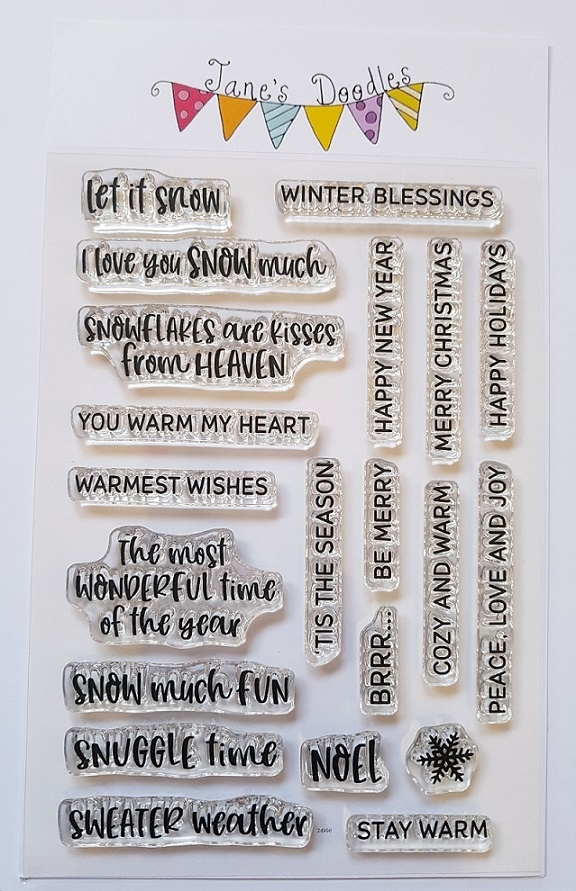 Jane's Doodles
let it snow
WINTER BLESSINGS
I love you SNOW much
SNOWFLAKES are kisses
from HEAVEN
HAPPY NEW YEAR
MERRY CHRISTMAS
HAPPY HOLIDAYS
YOU WARM MY HEART
WARMEST WISHES
'TIS THE SEASON
BE MERRY
COZY AND WARM
PEACE, LOVE AND JOY
The most
WONDERFUL time
of the year
BRRR...
SNOW much FUN
SNUGGLE time
NOEL
SWEATER weather
STAY WARM